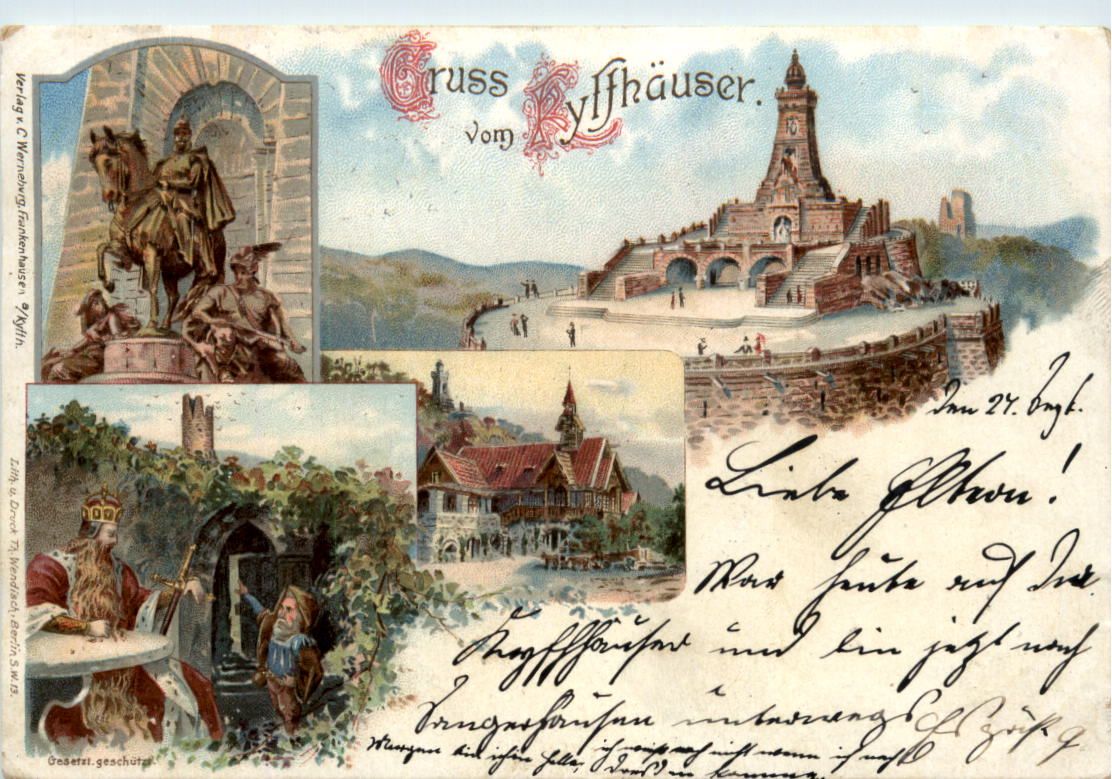 Gruss
vom Kyffhäuser.
Verlag v. C. Werneburg, Frankenhausen a/Kyffh.
Lith. u. Druck Th. Wendisch, Berlin S.W. 13.
Gesetzl. geschützt.
den 27. Sept.
Liebe Eltern!
War heute auf dem
Kyffhäuser und bin jetzt nach
Sangerhausen unterwegs
Morgen bin ich in Halle, ich weiß noch nicht wann ich nach
komme.